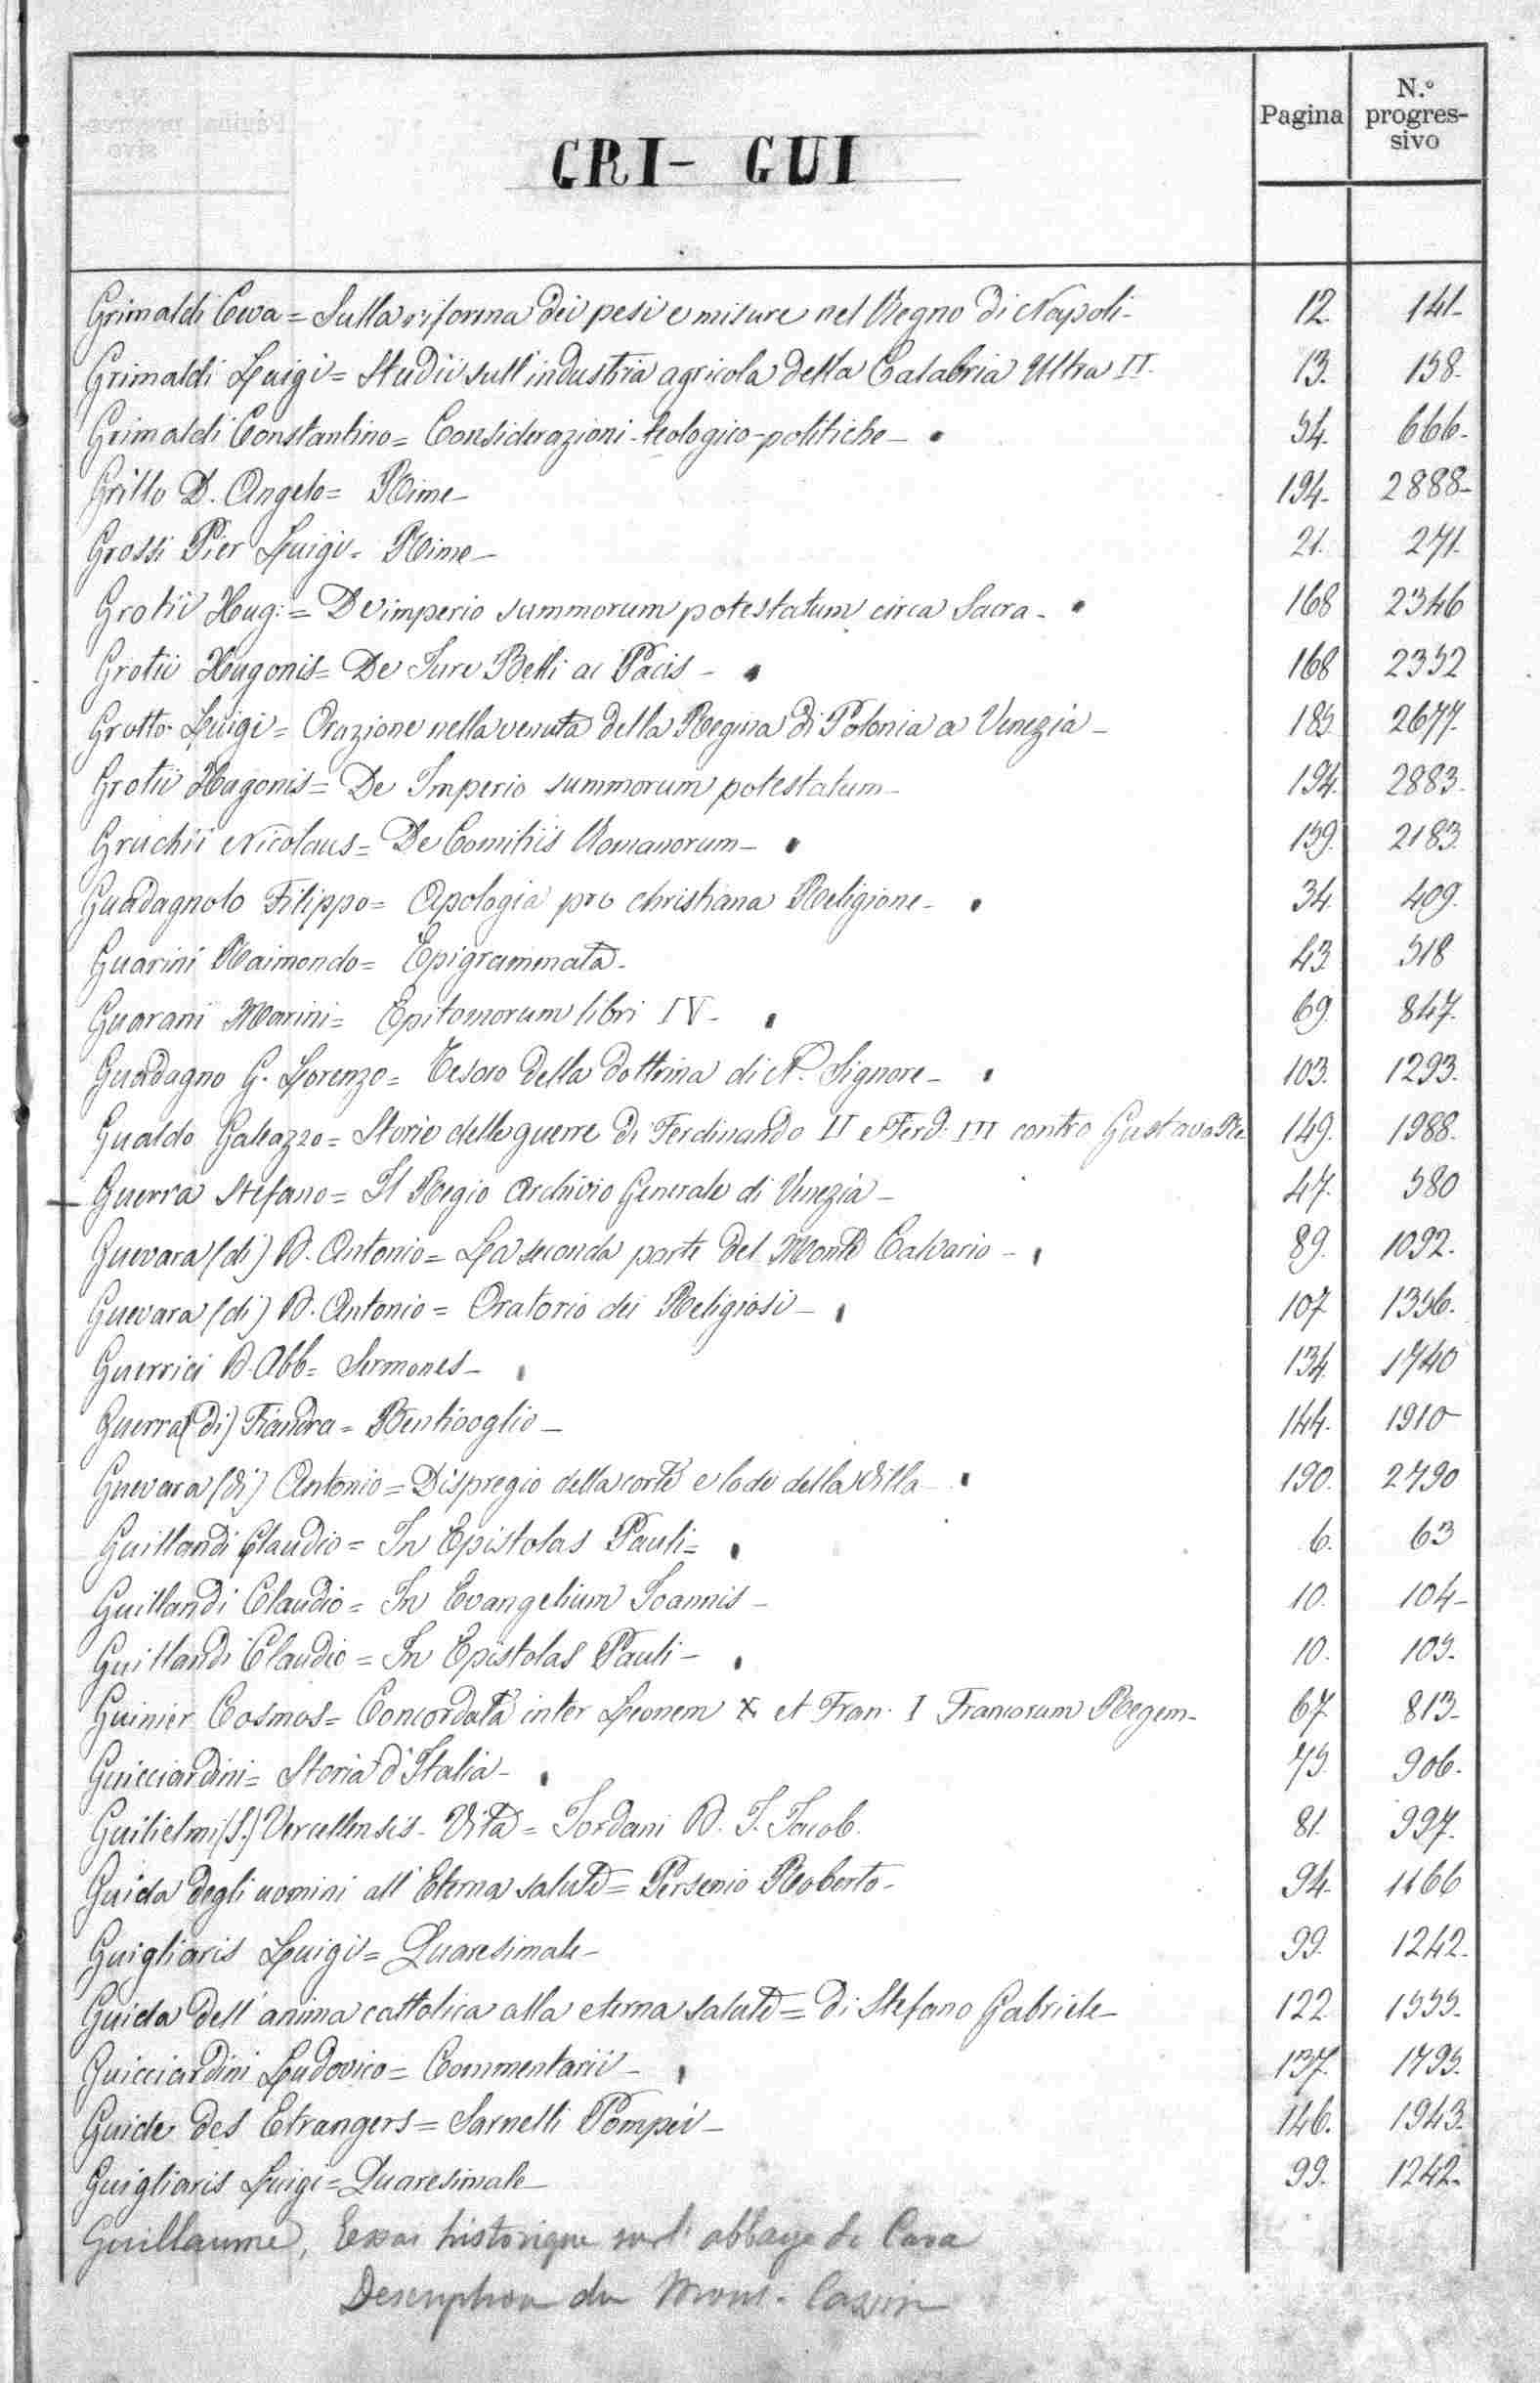 Pagina
N.º progres-
sivo
GRI - GUI
Grimaldi Ceva = Sulla riforma dei pesi e misure nel Regno di Napoli - 12. 141-
Grimaldi Luigi = Studii sull'industria agricola della Calabria Ultra II. 13. 158.
Grimaldi Constantino = Considerazioni teologico-politiche - 54. 666-
Grillo D. Angelo = Rime - 194- 2888-
Grossi Pier Luigi = Rime - 21. 271.
Grotii Hug: = De imperio summorum potestatum circa Sacra - 168 2346
Grotii Hugonis = De Jure Belli ac Pacis - 168 2352
Grotto Luigi = Orazione nella venuta della Regina di Polonia a Venezia - 185. 2677.
Grotii Hugonis = De Imperio summorum potestatum - 194. 2883.
Gruchii Nicolaus = De Comitiis Romanorum - 159. 2183.
Guadagnolo Filippo = Apologia pro christiana Religione - 34 409.
Guarini Raimondo = Epigrammata - 43 518
Guarani Marini = Epitomorum libri IV - 69. 847.
Guadagno G. Lorenzo = Tesoro della dottrina di N. Signore - 103. 1293.
Gualdo Galeazzo = Storie delle guerre di Ferdinando II e Ferd. III contro Gustavo Re 149. 1988.
Guerra Stefano = Il Regio Archivio Generale di Venezia - 47. 580
Guevara (di) D. Antonio = La seconda parte del Monte Calvario - 89. 1092.
Guevara (di) D. Antonio = Oratorio dei Religiosi - 107 1356.
Guerrici D. Abb = Sermones - 134. 1740
Guerra (di) Fiandra = Bentivoglio - 144. 1910
Guevara (di) Antonio = Dispregio della corte e lode della villa - 190. 2790
Guillandi Claudio = In Epistolas Pauli = 6. 63
Guillandi Claudio = In Evangelium Joannis - 10. 104-
Guillandi Claudio = In Epistolas Pauli - 10. 105.
Guinier Cosmos = Concordata inter Leonem X et Fran. I Francorum Regem - 67. 813-
Guicciardini = Storia d'Italia - 75. 906.
Guilielmi (S.) Vercellensis Vita = Jordani D. J. Jacob. 81. 997.
Guida degli uomini all'Eterna salute = Persenio Roberto - 94. 1166
Guigliaris Luigi = Quaresimale - 99. 1242.
Guida dell'anima cattolica alla eterna salute = di Stefano Gabriele - 122. 1555.
Guicciardini Ludovico = Commentarii - 137. 1795.
Guide des Etrangers = Sarnelli Pompei - 146. 1943.
Guigliaris Luigi = Quaresimale - 99. 1242.
Guillaume, Essai historique sur l'abbaye de Cava
Description du Mont-Cassin